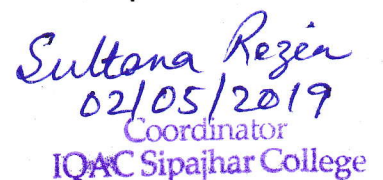 Sultana Rezia
02/05/2019
Coordinator
IQAC Sipajhar College